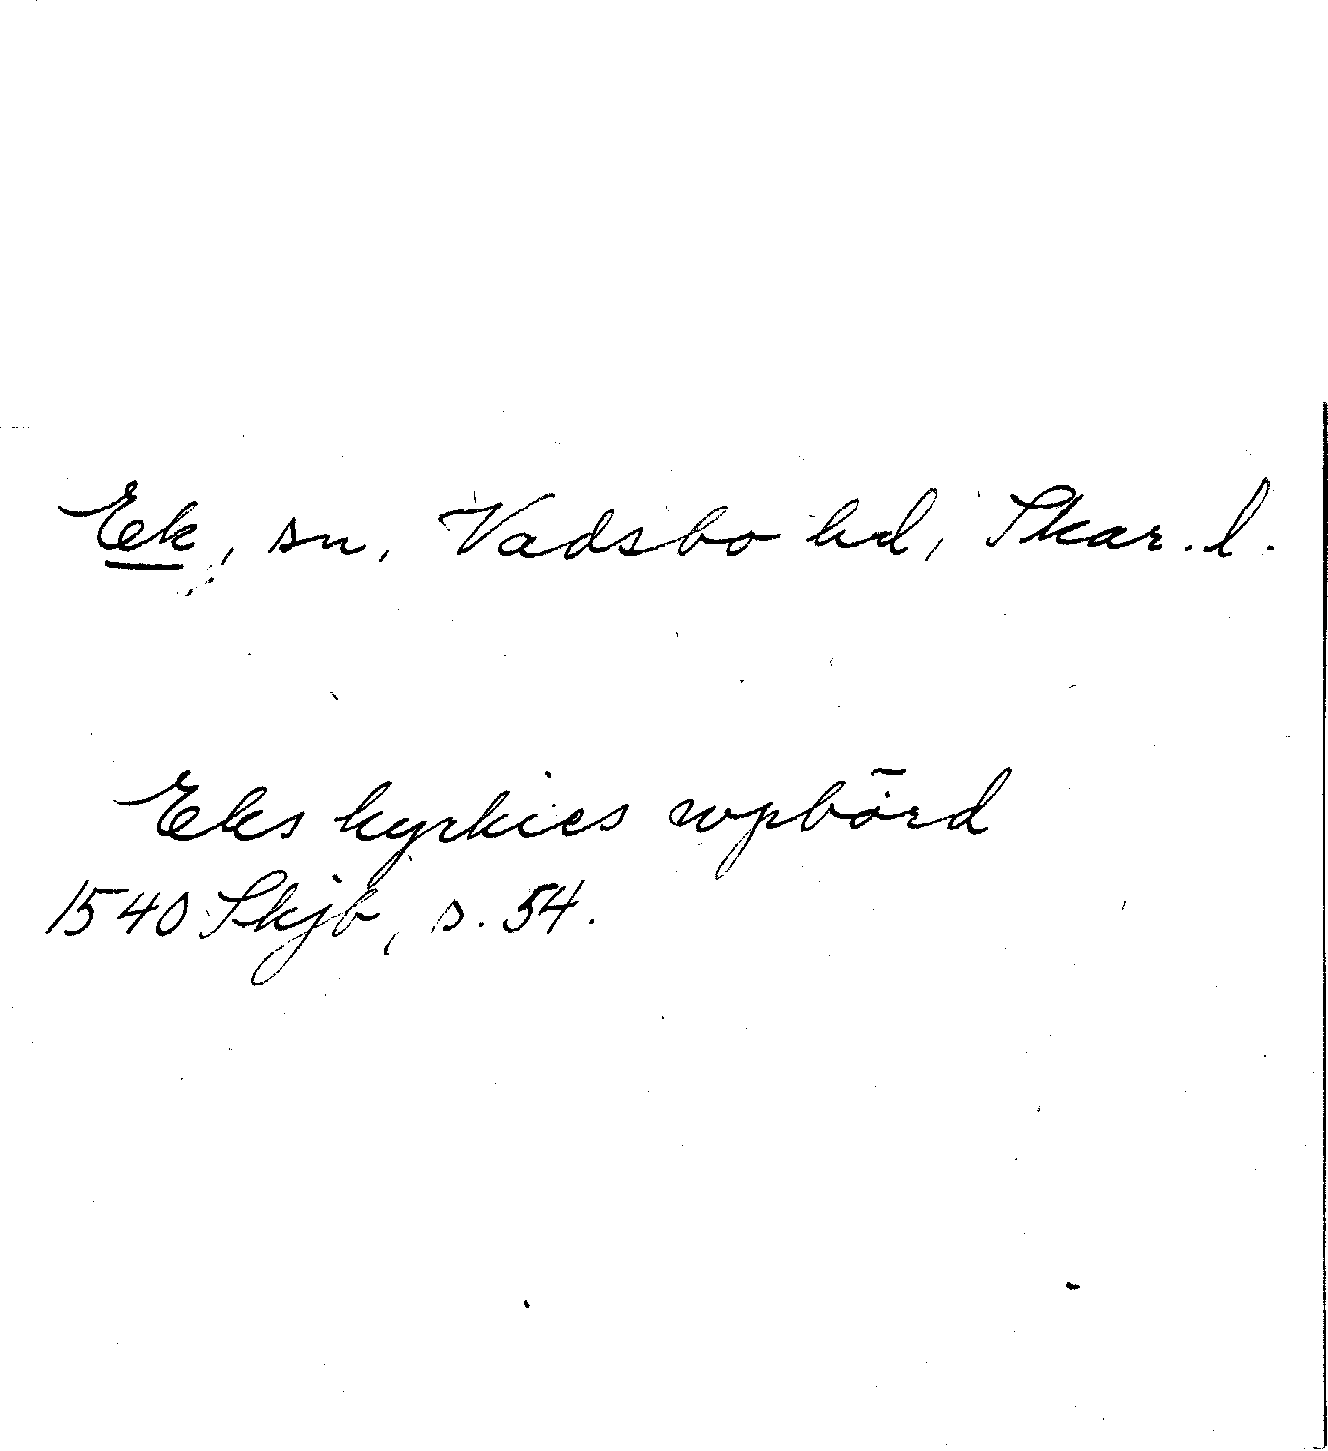 Ek, sn, Vadsbo hd, Skar. l.
Eks kyrkies wpbörd
1540 Skjb, s. 54.